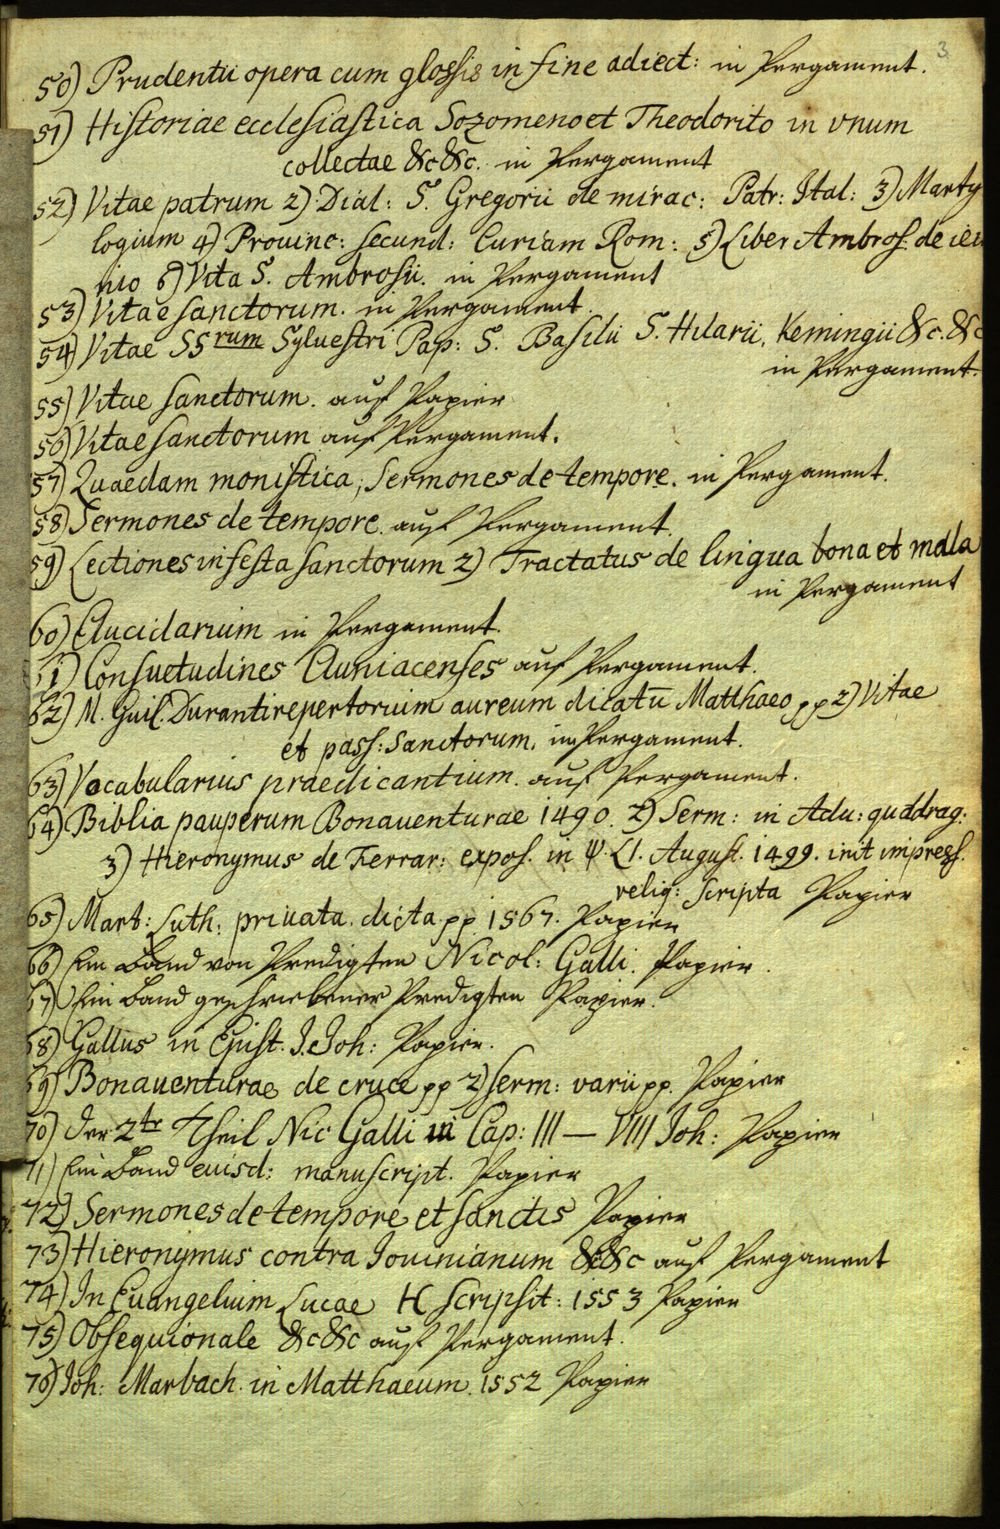 3
50) Prudentii opera cum glossis in fine adiect: in Pergament.
51) Historiae ecclesiastica Sozomeno et Theodorito in vnum
collectae &c &c. in Pergament
52) Vitae patrum 2) Dial: S. Gregorii de mirac: Patr: Ital: 3) Marty
logium 4) Prouinc: secund: Curiam Rom: 5) Liber Ambros: de ieiu
nio 6) Vita S. Ambrosii. in Pergament
53) Vitae sanctorum. in Pergament.
54) Vitae SSrum Syluestri Pap: S. Basilii S. Hilarii, Remingii &c. &c
in Pergament.
55) Vitae sanctorum. auf Papier
56) Vitae sanctorum auf Pergament.
57) Quaedam monistica, Sermones de tempore. in Pergament.
58) Sermones de tempore. auf Pergament.
59) Lectiones in festa sanctorum 2) Tractatus de lingua bona et mala
in Pergament
60) Elucidarium in Pergament.
61) Consuetudines Cluniacenses auf Pergament.
62) M. Guil. Duranti repertorium aureum dicatū Matthaeo pp 2) Vitae
et pass: Sanctorum. in Pergament.
63) Vocabularius praedicantium. auf Pergament.
64) Biblia pauperum Bonauenturae 1490. 2) Serm: in Adu: quadrag:
3) Hieronymus de Ferrar: expos. in ψ. LI. August. 1499. init impress.
reliq: scripta Papier
65) Mart: Luth: priuata dicta pp 1567. Papier
66) Ein Band von Predigten Nicol: Galli. Papier.
67) Ein Band geschriebener Predigten Papier.
68) Gallus in Epist. I. Joh: Papier.
69) Bonauenturae de cruce pp 2) Serm: varii pp. Papier
70) der 2te Theil Nic Galli in Cap: III — VIII Joh: Papier
71) Ein Band euisd: manuscript. Papier
72) Sermones de tempore et sanctis Papier
73) Hieronymus contra Iouinianum &c &c auf Pergament
74) In Euangelium Lucae H scripsit: 1553 Papier
75) Obsequionale &c &c auf Pergament.
76) Joh: Marbach in Matthaeum. 1552 Papier